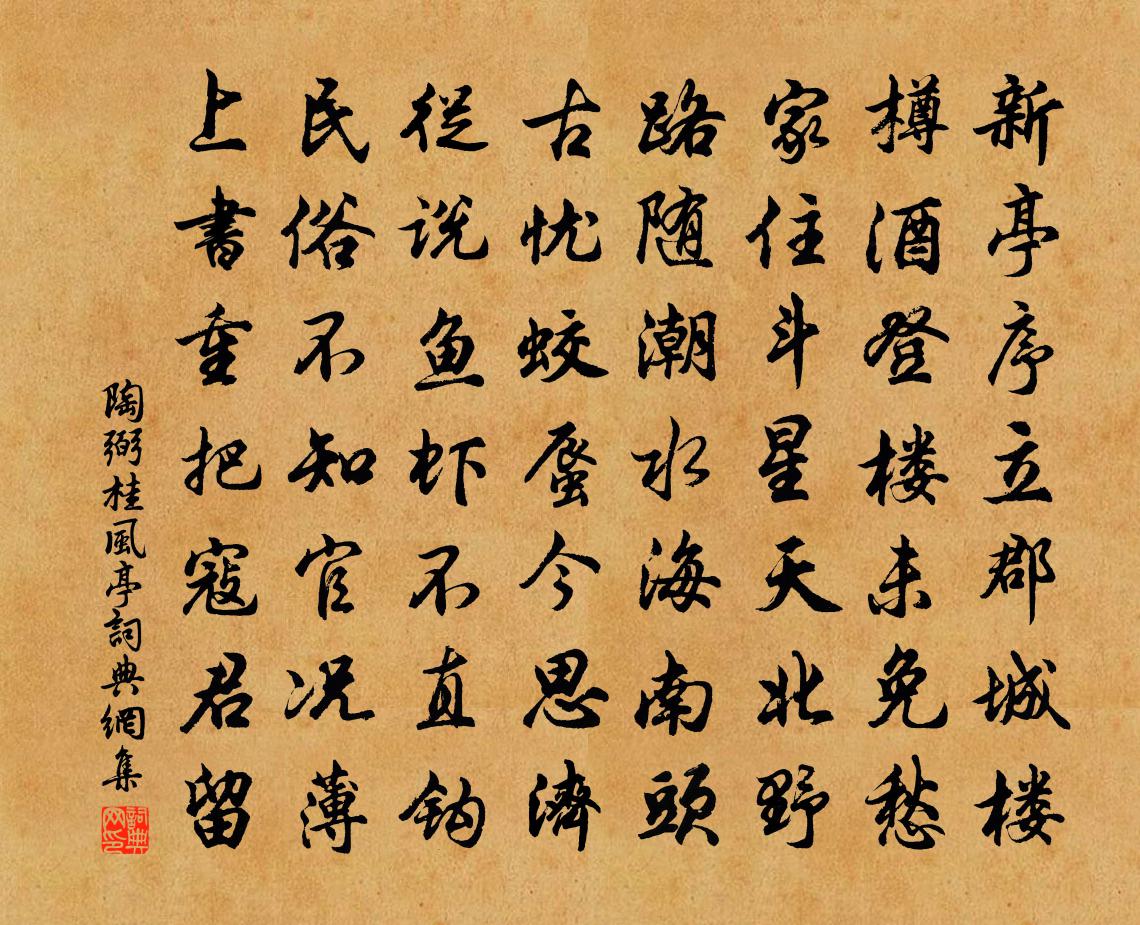 新亭序立郡城楼
樽酒登楼未免愁
家住斗星天北野
路随潮水海南头
古忧蛟蜃今思济
從说鱼虾不直钩
民俗不知官况薄
上書重把寇君留
陶弼桂風亭詞典網集
詞典网印